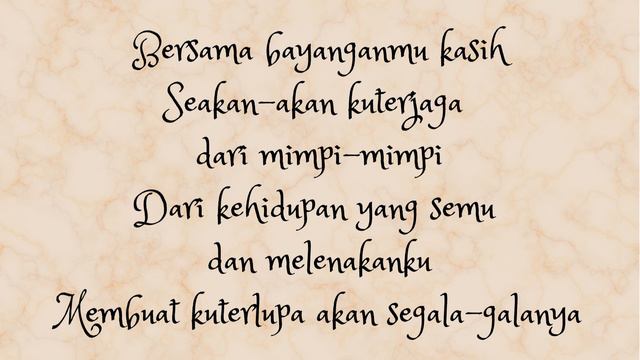 Bersama bayanganmu kasih
Seakan-akan kuterjaga
dari mimpi-mimpi
Dari kehidupan yang semu
dan melenakanku
Membuat kuterlupa akan segala-galanya